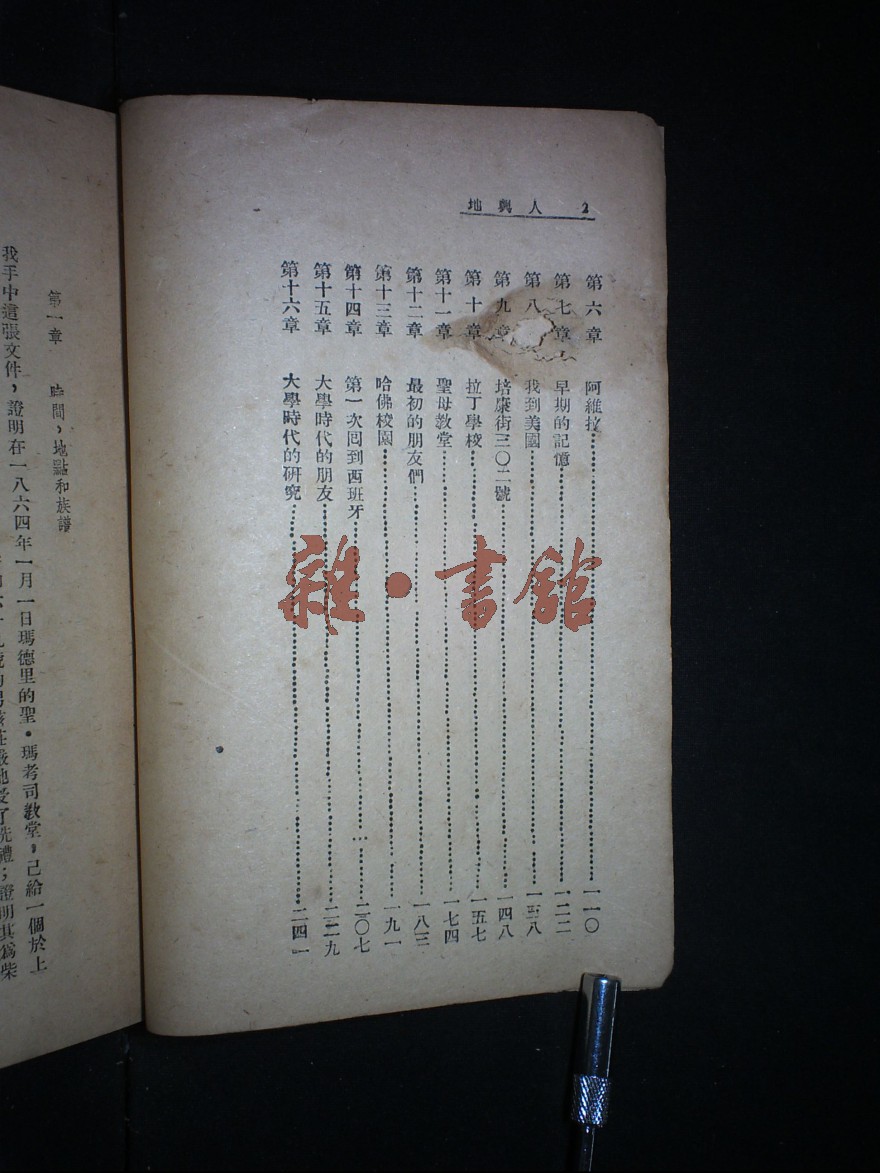 2 人與地
第六章 阿維拉 一一〇
第七章 早期的記憶 一二二
第八 我到美國 一三八
第九章 培康街三〇二號 一四八
第十章 拉丁學校 一五七
第十一章 聖母教堂 一七四
第十二章 最初的朋友們 一八三
第十三章 哈佛校園 一九一
第十四章 第一次回到西班牙 二〇七
第十五章 大學時代的朋友 二二九
第十六章 大學時代的研究 二四一
第一章 時間，地點和族譜
我手中這張文件，證明在一八六四年一月一日瑪德里的聖•瑪考司教堂，己給一個於上
地受了洗禮；證明其爲柴
雜•書館